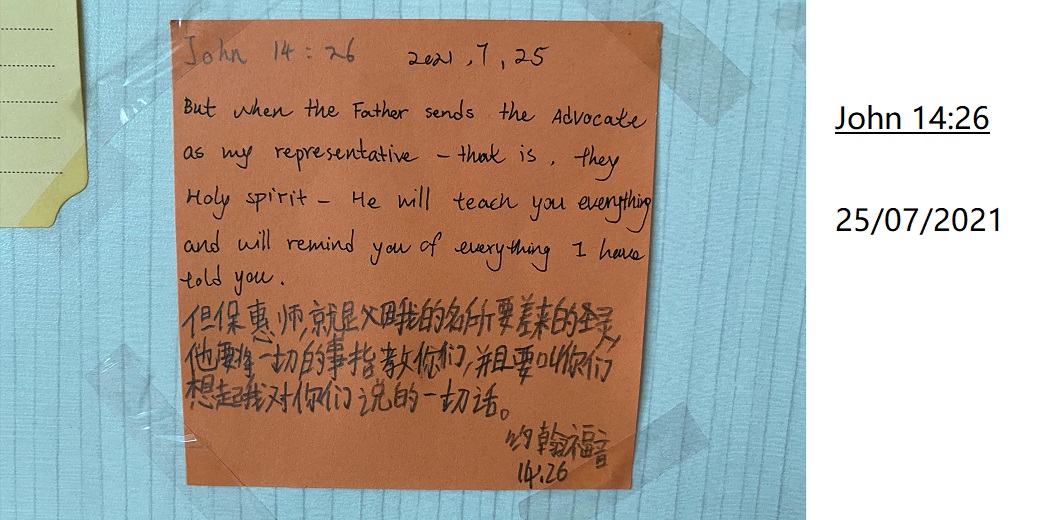 John 14:26 2021,7,25
But when the Father sends the Advocate
as my representative – that is, they
Holy spirit – He will teach you everything
and will remind you of everything I have
told you.
但保惠师,就是父因我的名所要差来的圣灵,
他要将一切的事指教你们,并且要叫你们
想起我对你们说的一切话。
约翰福音
14:26
John 14:26
25/07/2021